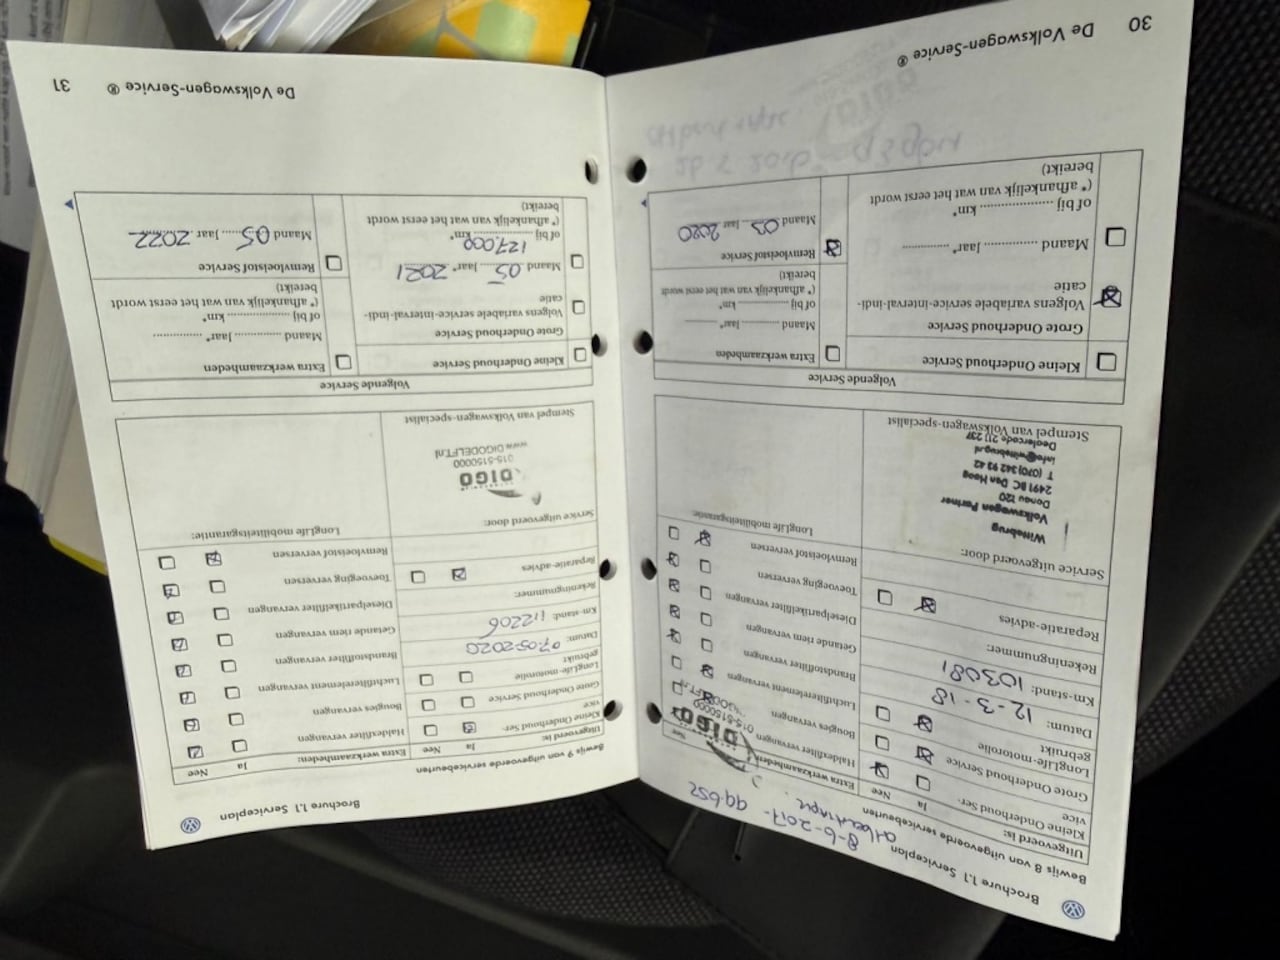 Brochure 1.1 Serviceplan
8-6-2017 - 99.652
Bewijs 8 van uitgevoerde servicebeurten
Uitgevoerd is: Ja Nee
Kleine Onderhoud Ser-
vice
Grote Onderhoud Service
LongLife-motorolie
gebruikt
Datum: 12-3-18
Km-stand: 103081
Rekeningnummer:
Reparatie-advies
Service uitgevoerd door:
Wittebrug
Volkswagen Partner
Donau 120
2491 BC Den Haag
T (070) 342 93 42
info@wittebrug.nl
Dealercode 211 237
Stempel van Volkswagen-specialist
Extra werkzaamheden: Nee
Helderfilter vervangen
Bougies vervangen
Luchtfilterelement vervangen
Brandstoffilter vervangen
Getande riem vervangen
Dieselpartikelfilter vervangen
Toevoeging verversen
Remvloeistof verversen
LongLife mobiliteitsgarantie:
DIGO
015-5150000
Volgende Service
Kleine Onderhoud Service
Grote Onderhoud Service
Volgens variabele service-interval-indi-
catie
Maand ............ Jaar* ............
of bij .................... km*
(* afhankelijk van wat het eerst wordt
bereikt)
Extra werkzaamheden
Maand ............ Jaar* ............
of bij ............ km*
(* afhankelijk van wat het eerst wordt
bereikt)
Remvloeistof Service
Maand 03 Jaar 2020
DIGO
30 De Volkswagen-Service ®
Brochure 1.1 Serviceplan
Bewijs 9 van uitgevoerde servicebeurten
Uitgevoerd is: Ja Nee
Kleine Onderhoud Ser-
vice
Grote Onderhoud Service
LongLife-motorolie
gebruikt
Datum: 07-05-2020
Km-stand: 112206
Rekeningnummer:
Reparatie-advies
Service uitgevoerd door:
DIGO
015-5150000
www.DIGODELFT.nl
Stempel van Volkswagen-specialist
Extra werkzaamheden: Ja Nee
Helderfilter vervangen
Bougies vervangen
Luchtfilterelement vervangen
Brandstoffilter vervangen
Getande riem vervangen
Dieselpartikelfilter vervangen
Toevoeging verversen
Remvloeistof verversen
LongLife mobiliteitsgarantie:
Volgende Service
Kleine Onderhoud Service
Grote Onderhoud Service
Volgens variabele service-interval-indi-
catie
Maand 05 Jaar* 2021
of bij 127.000 km*
(* afhankelijk van wat het eerst wordt
bereikt)
Extra werkzaamheden
Maand ............ Jaar* ............
of bij .................... km*
(* afhankelijk van wat het eerst wordt
bereikt)
Remvloeistof Service
Maand 05 Jaar 2022
De Volkswagen-Service ® 31